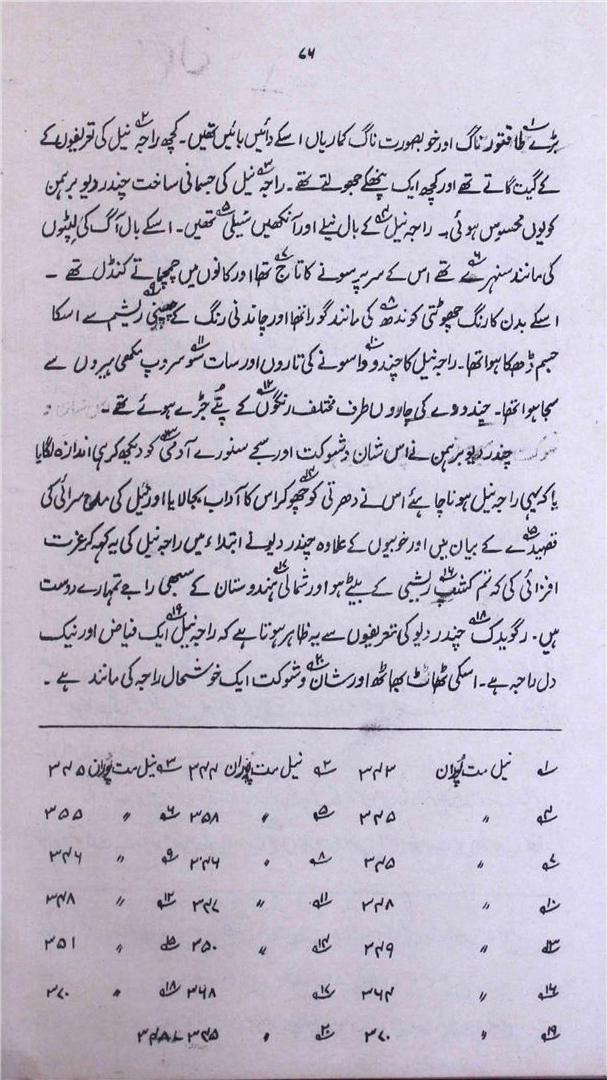 ۷۶
بڑے۱ طاقتور ناگ اور خوبصورت ناگ کماریاں اسکے دائیں بائیں تھیں۔ کچھ راجہ۲ نیل کی تعریفوں کے
کے گیت گاتے تھے اور کچھ ایک پنکھے جھولتے تھے۔ راجہ۳ نیل کی جسمانی ساخت چندر دیو برہمن
کو یوں محسوس ہوئی۔ راجہ نیل۴ کے بال نیلے اور آنکھیں نیلی۵ تھیں۔ اسکے بال آگ کی لپٹوں
کی مانند سنہرے۶ تھے اس کے سر پر سونے کا تاج۷ تھا اور کانوں میں چمچاتے کنڈل تھے۔
اسکے بدن کا رنگ چھوٹتی کوندھ۸ کی مانند گورا تھا اور چاندنی رنگ کے چینی۹ ریشم سے اسکا
جسم ڈھکا ہوا تھا۔ راجہ نیل کا چندووا۱۰ سونے کی تاروں اور سات سو۱۱ سروپ مکھی ہیروں سے
سجا ہوا تھا۔ چندووے کی چاروں طرف مختلف رنگوں۱۲ کے پتے جڑے ہوئے تھے۔
چندر دیو برہمن نے اس شان و شوکت اور سجے سنورے آدمی۱۳ کو دیکھ کر ہی اندازہ لگایا
یا کہ یہی راجہ نیل ہونا چاہئے اس نے دھرتی کو چھو کر۱۴ اس کا آداب بجا لایا اور نیل کی مدح سرائی کی
قصیدے۱۵ کے بیان میں اور خوبیوں کے علاوہ چندر دیو نے ابتداء میں راجہ نیل کی یہ کہہ کر عزت
افزائی کی کہ تم کشپ۱۶ ریشی کے بیٹے ہو اور شمالی۱۷ ہندوستان کے سبھی راجے تمہارے دوست
ہیں۔ رگویدک۱۸ چندر دیو کی تعریفوں سے یہ ظاہر ہوتا ہے کہ راجہ نیل۱۹ ایک فیاض اور نیک
دل راجہ ہے۔ اسکی ٹھاٹ بھاٹھ اور شان۲۰ و شوکت ایک خوشحال راجہ کی مانند ہے۔
۱ نیل مت پُوران ۳۴۳ ۲ نیل مت پُوران ۳۴۴ ۳ نیل مت پُوران ۳۴۵
۴ ״ ۳۴۵ ۵ ״ ۳۵۸ ۶ ״ ۳۵۵
۷ ״ ۳۴۵ ۸ ״ ۳۴۶ ۹ ״ ۳۴۶
۱۰ ״ ۳۴۸ ۱۱ ״ ۳۴۷ ۱۲ ״ ۳۴۸
۱۳ ״ ۳۴۹ ۱۴ ״ ۳۵۰ ۱۵ ״ ۳۵۱
۱۶ ״ ۳۶۴ ۱۷ ۳۶۸ ۱۸ ״ ۳۷۰
۱۹ ״ ۳۷۰ ۲۰ ״ ۳۴۵ ۳۴۸